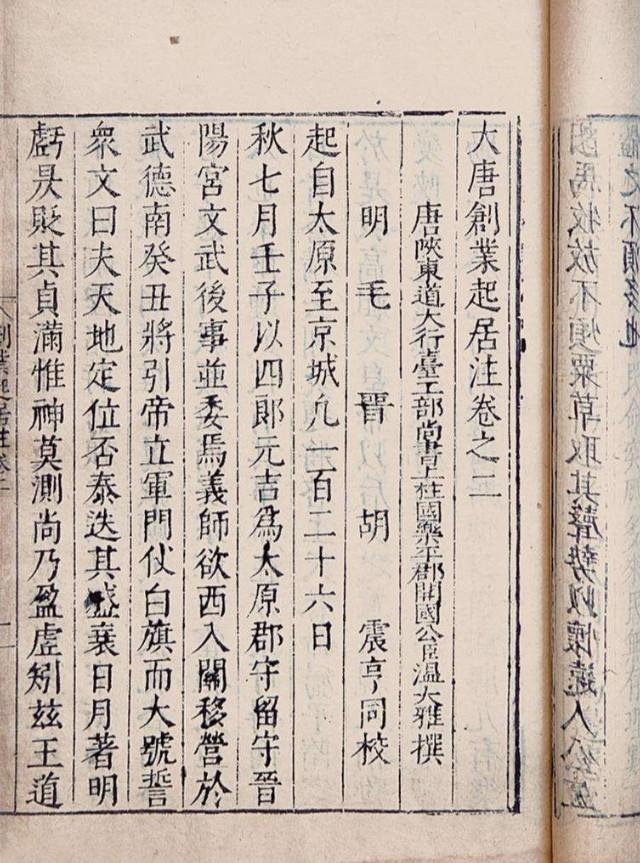 馬牧放不煩粟草取其聲勢以懷遠人公
大唐創業起居注卷之二
唐陝東道大行臺工部尚書上柱國樂平郡開國公臣溫大雅撰
明毛晉胡震亨同校
起自太原至京城凡一百二十六日
秋七月壬子以四郎元吉爲太原郡守留守晉
陽宮文武後事並委焉義師欲西入關移營於
武德南癸丑將引帝立軍門仗白旗而大號誓
衆文曰夫天地定位否泰迭其盛衰日月著明
虧昃貶其貞滿惟神莫測尚乃盈虛矧茲王道